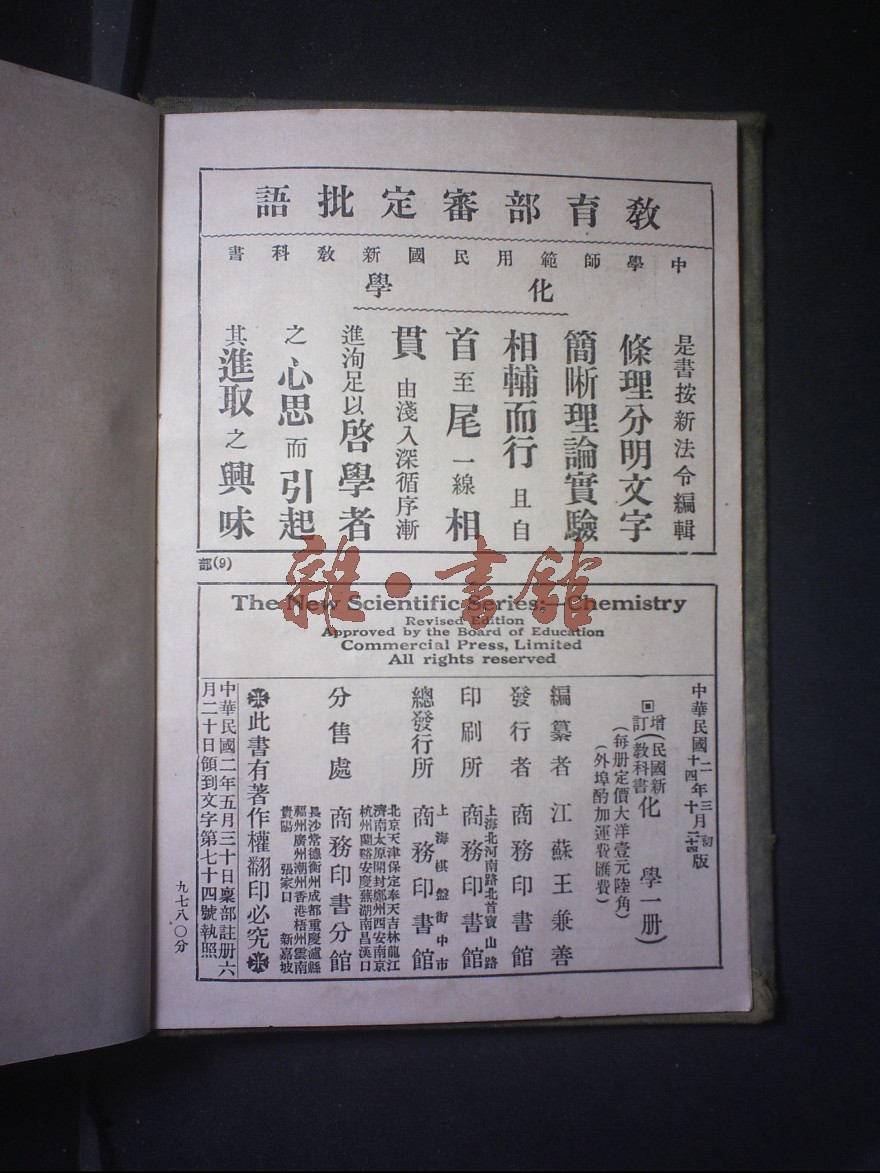 教育部審定批語
中學師範用民國新教科書
化學
是書按新法令編輯
條理分明文字
簡晰理論實驗
相輔而行且自
首至尾一線相
貫由淺入深循序漸
進洵足以啓學者
之心思而引起
其進取之興味
部(9)
雜·書館
The New Scientific Series:—Chemistry
Revised Edition
Approved by the Board of Education
Commercial Press, Limited
All rights reserved
中華民國二年三月初版
十四年十月二十四版
增訂(民國新教科書化學一册)
(每册定價大洋壹元陸角)
(外埠酌加運費匯費)
編纂者 江蘇王兼善
發行者 商務印書館
印刷所 上海北河南路北首寶山路 商務印書館
總發行所 上海棋盤街中市 商務印書館
分售處 商務印書分館
北京天津保定奉天吉林龍江
濟南太原開封鄭州西安南京
杭州蘭谿安慶蕪湖南昌漢口
長沙常德衡州成都重慶瀘縣
福州廣州潮州香港梧州雲南
貴陽 張家口 新嘉坡
此書有著作權翻印必究
中華民國二年五月三十日稟部註册六
月二十日領到文字第七十四號執照
九七八〇分